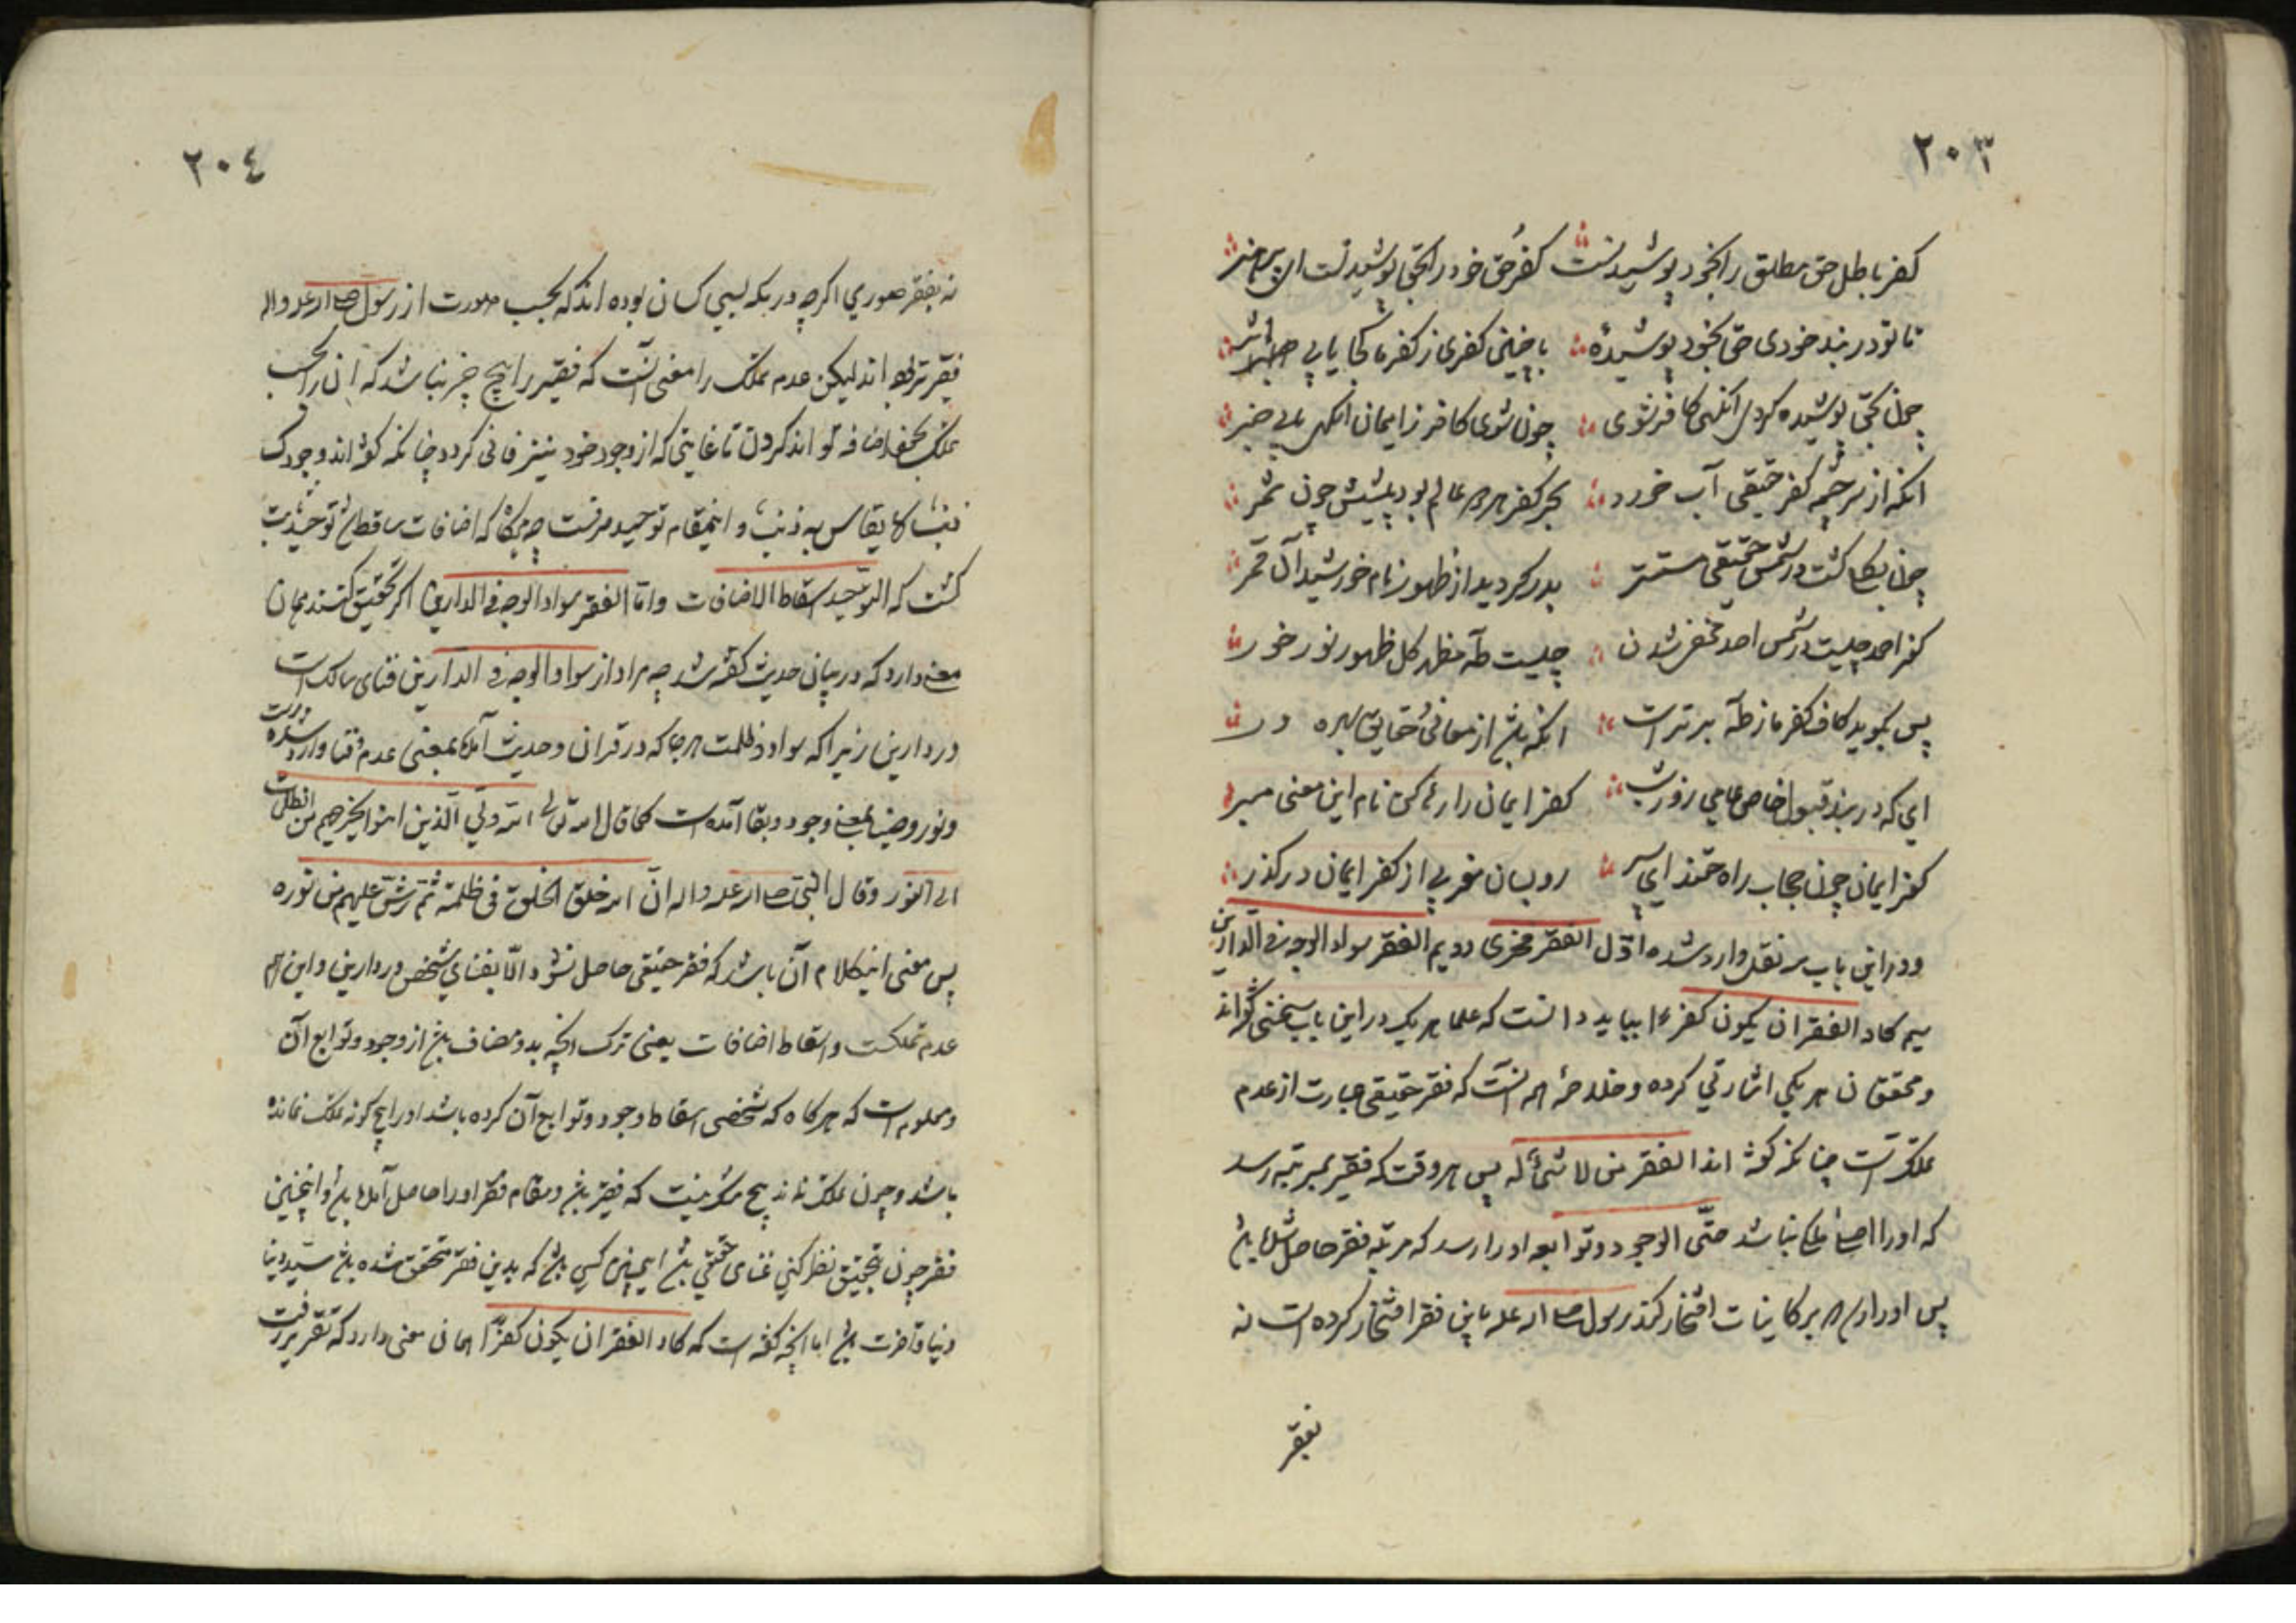 ٢٠٣
کفر باطل حق مطلق را بخود پوشیدنست کفر حق خود را بحق پوشیدنست ای پر هنر
تا تو در بند خودی حق بخود پوشیدهٔ با چنین کفری ز کفر ما کجا یابی اثر
چون بحق پوشیده کردی آنگهی کافر شوی چون شوی کافر ز ایمان آنگهی یابی خبر
آنکه از سرچشمه کفر حقیقی آب خورد بحر کفر هر دو عالم بود پیشش چون شمر
چون بکل کشت در شمس حقیقی مستتر بدر کردید از ظهورنام خورشید آن قمر
کفر احمد چیست در شمس احد مخفی شدن چیست طه مظهر کل ظهور نور خور
پس بگوید کاف کفر ما ز طه برترات آنکه باشد از معانی حقایق بهره ور
ای که در بند قبول خاص و عامی روز و شب کفر ایمان را رها کن نام این معنی مبر
کفر ایمان چون حجاب راه حقند ای پسر رو بسان مغربی از کفر ایمان درکذر
و در این باب سه نقل وارد شده اول الفقر فخری دویم الفقر سواد الوجه فی الدارین
سیم کاد الفقر ان یکون کفرا بباید دانست که علما هر یک در این باب سخنی گفته‌اند
و محققان هر یکی اشارتی کرده و خلاصهٔ همه آنست که فقر حقیقی عبارت از عدم
تملک است چنانکه گفته اند الفقر من لا شیء له پس هر وقت که فقیر بمرتبه رسد
که او را اصلا ملک نباشد حتی الوجود و توابعه او را رسد که مرتبه فقر حاصل شده باشد
پس او را و هم بر کاینات افتخار کند رسول صلی الله علیه باین فقر افتخار کرده است نه
بفقر
٢٠٤
نه بفقر صوری اکرچه در یکه لبسی کسان بوده اند که بحسب صورت از رسول صلی الله علیه واله
فقیرتر بوده اند لیکن عدم تملک را معنی آنست که فقیر را هیچ چیز نباشد که آن را بحسب
تملک بخود اضافه تواند کردن تا غایتی که از وجود خود نیز فانی کردد چنانکه گفته اند وجودک
ذنب لا یقاس به ذنب و اینمقام توحید صرفست چه هرکاه که اضافات ساقط شد توحید ثابت
کشت که التوحید اسقاط الاضافات واما الفقر سواد الوجه فی الدارین اکر تحقیق کنند همان
معنی دارد که در بیان حدیث گفته شد چه مراد از سواد الوجه فی الدارین فنای سالک است
در دارین زیرا که سواد و ظلمت هرجا که در قران و حدیث آمده بمعنی عدم و فنا وارد شده است
و نور و ضیا بمعنی وجود و بقا آمده است کما قال الله تعالی الله ولی الذین امنوا یخرجهم من الظلمات
الی النور وقال النبی صلی الله علیه واله ان الله خلق الخلق فی ظلمة ثم رش علیهم من نوره
پس معنی اینکلام آن باشد که فقر حقیقی حاصل نشود الا بفنای شخص در دارین و این هم
عدم تملکست و اسقاط اضافات یعنی ترک آنچه بدو مضاف باشد از وجود و توابع آن
و معلوم است که هرکاه که شخصی اسقاط وجود و توابع آن کرده باشد او را هیچ کونه تملک نمانده
باشد و چون تملک نماند هیچ شک نیست که فقیر باشد و مقام فقر او را حاصل آمده باشد و اینچنین
فقر چون بتحقیق نظر کنی غنای حقیقی باشد ایمن کسی باشد که بدین فقر متحقق شده باشد سید دنیا
دنیا و اخرت باشد اما آنچه گفته است که کاد الفقر ان یکون کفرا همان معنی دارد که تقریر رفت